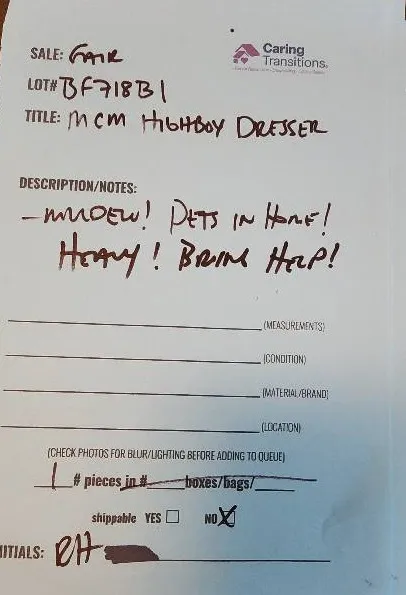 Caring
Transitions®
SALE: FAIR
LOT# BF718B1
TITLE: MCM HIGHBOY DRESSER
DESCRIPTION/NOTES:
- MILDEW! PETS IN HOME!
HEAVY! BRING HELP!
(MEASUREMENTS)
(CONDITION)
(MATERIAL/BRAND)
(LOCATION)
(CHECK PHOTOS FOR BLUR/LIGHTING BEFORE ADDING TO QUEUE)
1 # pieces in # boxes/bags/
shippable YES ☐ NO ☒
ITIALS: RH